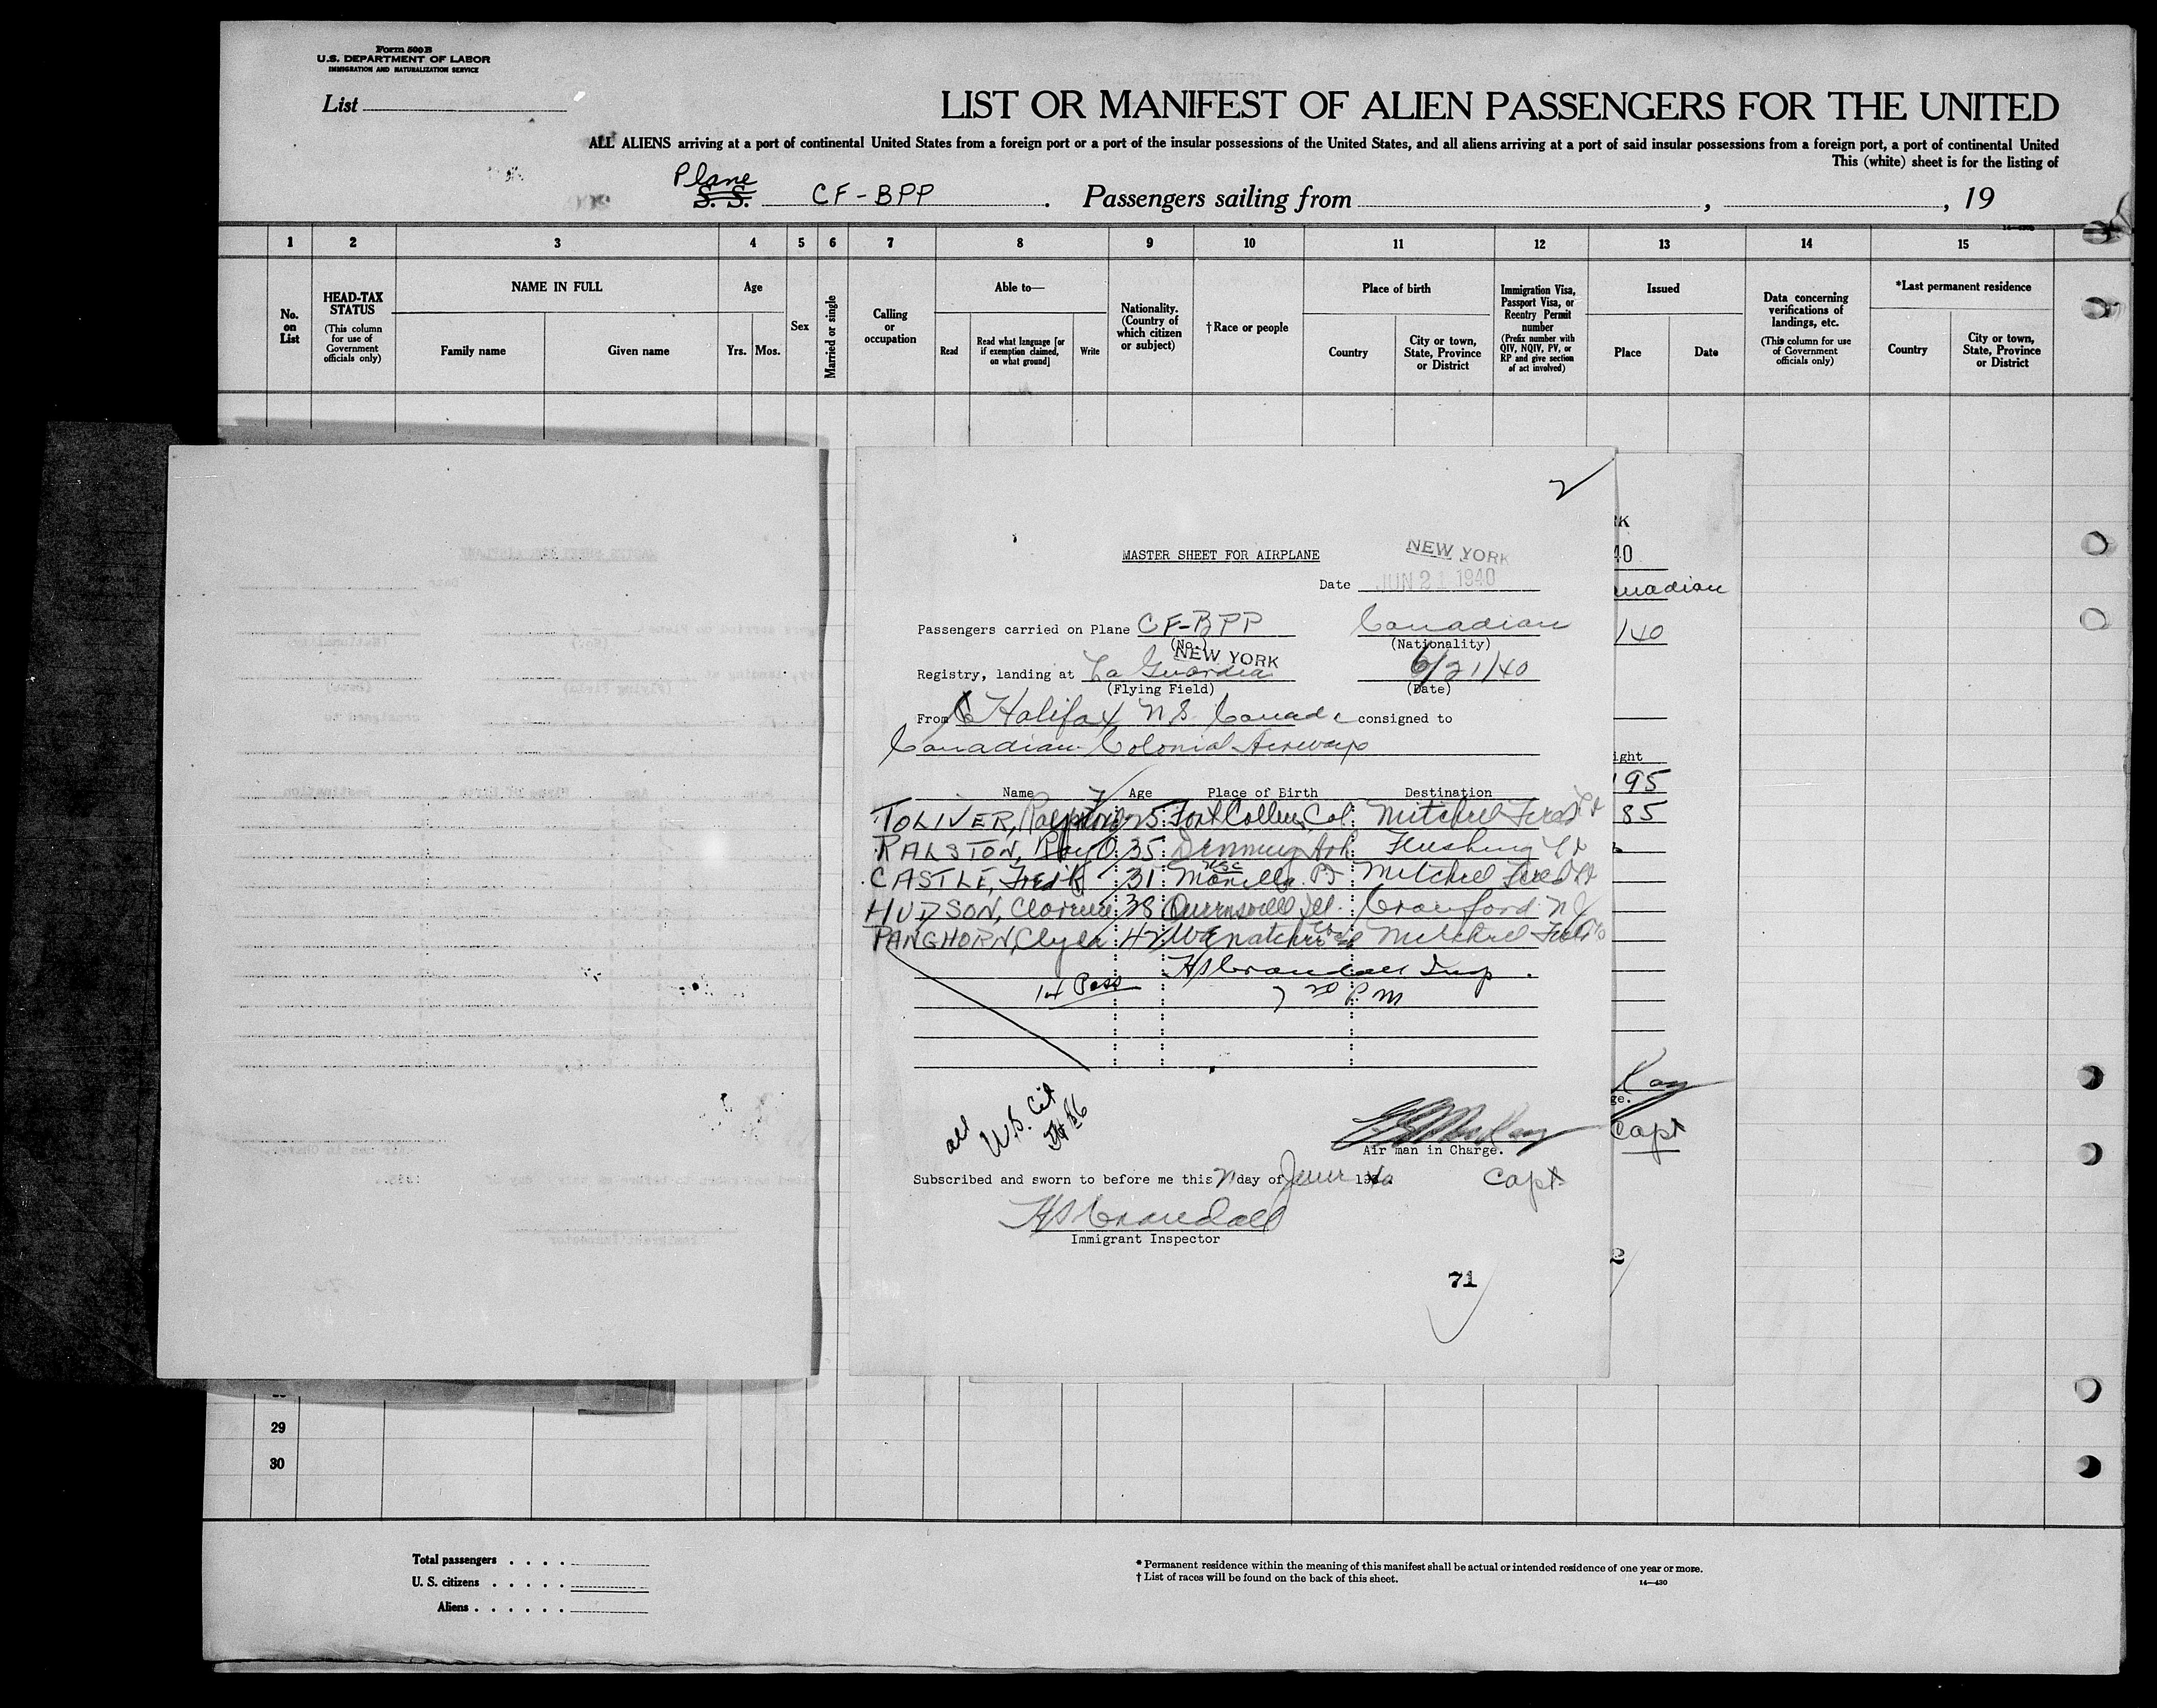 Form 500 B
U.S. DEPARTMENT OF LABOR
IMMIGRATION AND NATURALIZATION SERVICE
List
LIST OR MANIFEST OF ALIEN PASSENGERS FOR THE UNITED
ALL ALIENS arriving at a port of continental United States from a foreign port or a port of the insular possessions of the United States, and all aliens arriving at a port of said insular possessions from a foreign port, a port of continental United
This (white) sheet is for the listing of
Plane
S. S. CF-BPP . Passengers sailing from , , 19
1 2 3 4 5 6 7 8 9 10 11 12 13 14 15
No. on List
HEAD-TAX STATUS
(This column for use of Government officials only)
NAME IN FULL
Family name Given name
Age
Yrs. Mos.
Sex
Married or single
Calling or occupation
Able to—
Read
Read what language [or if exemption claimed, on what ground]
Write
Nationality. (Country of which citizen or subject)
†Race or people
Place of birth
Country
City or town, State, Province or District
Immigration Visa, Passport Visa, or Reentry Permit number
(Prefix number with QIV, NQIV, PV, or RP and give section of act involved)
Issued
Place Date
Data concerning verifications of landings, etc.
(This column for use of Government officials only)
*Last permanent residence
Country
City or town, State, Province or District
2
MASTER SHEET FOR AIRPLANE
NEW YORK
Date JUN 21 1940
Passengers carried on Plane CF-BPP Canadian
(No.) (Nationality)
NEW YORK
Registry, landing at La Guardia 6/21/40
(Flying Field) (Date)
From Halifax, N.S. Canada consigned to
Canadian Colonial Airways
Name Age Place of Birth Destination
TOLIVER, 25 Fort Collins, Col. Mitchel Field
RALSTON, Roy O 35 Flushing
CASTLE, Fred'k 31 Manila P.I. Mitchel Field
HUDSON, Clarence 38 Ill. Cranford N J
PANGHORN, Clyde 42 Wenatchee Mitchel Field
HS Crandall Insp.
Pass 7 20 P M
all
U.S. Cit
Air man in Charge.
Subscribed and sworn to before me this 21 day of June 40
Capt
HS Crandall
Immigrant Inspector
71
RK
40
anadian
/40
ight
195
85
Kay
ge.
Capt
2
29
30
Total passengers . . . .
U. S. citizens . . . . .
Aliens . . . . . .
* Permanent residence within the meaning of this manifest shall be actual or intended residence of one year or more.
† List of races will be found on the back of this sheet.
14—430